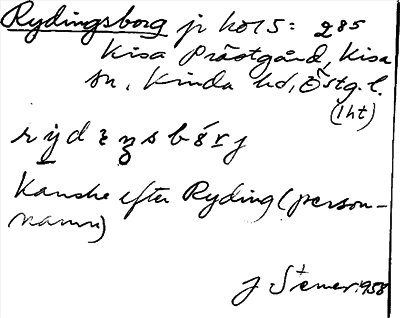 Rydingsborg jr ho15: 285
Kisa Prästgård, Kisa
sn, Kinda hd, Östg.l.
(lht)
Kanske efter Ryding (person-
namn)
J Stener 1958